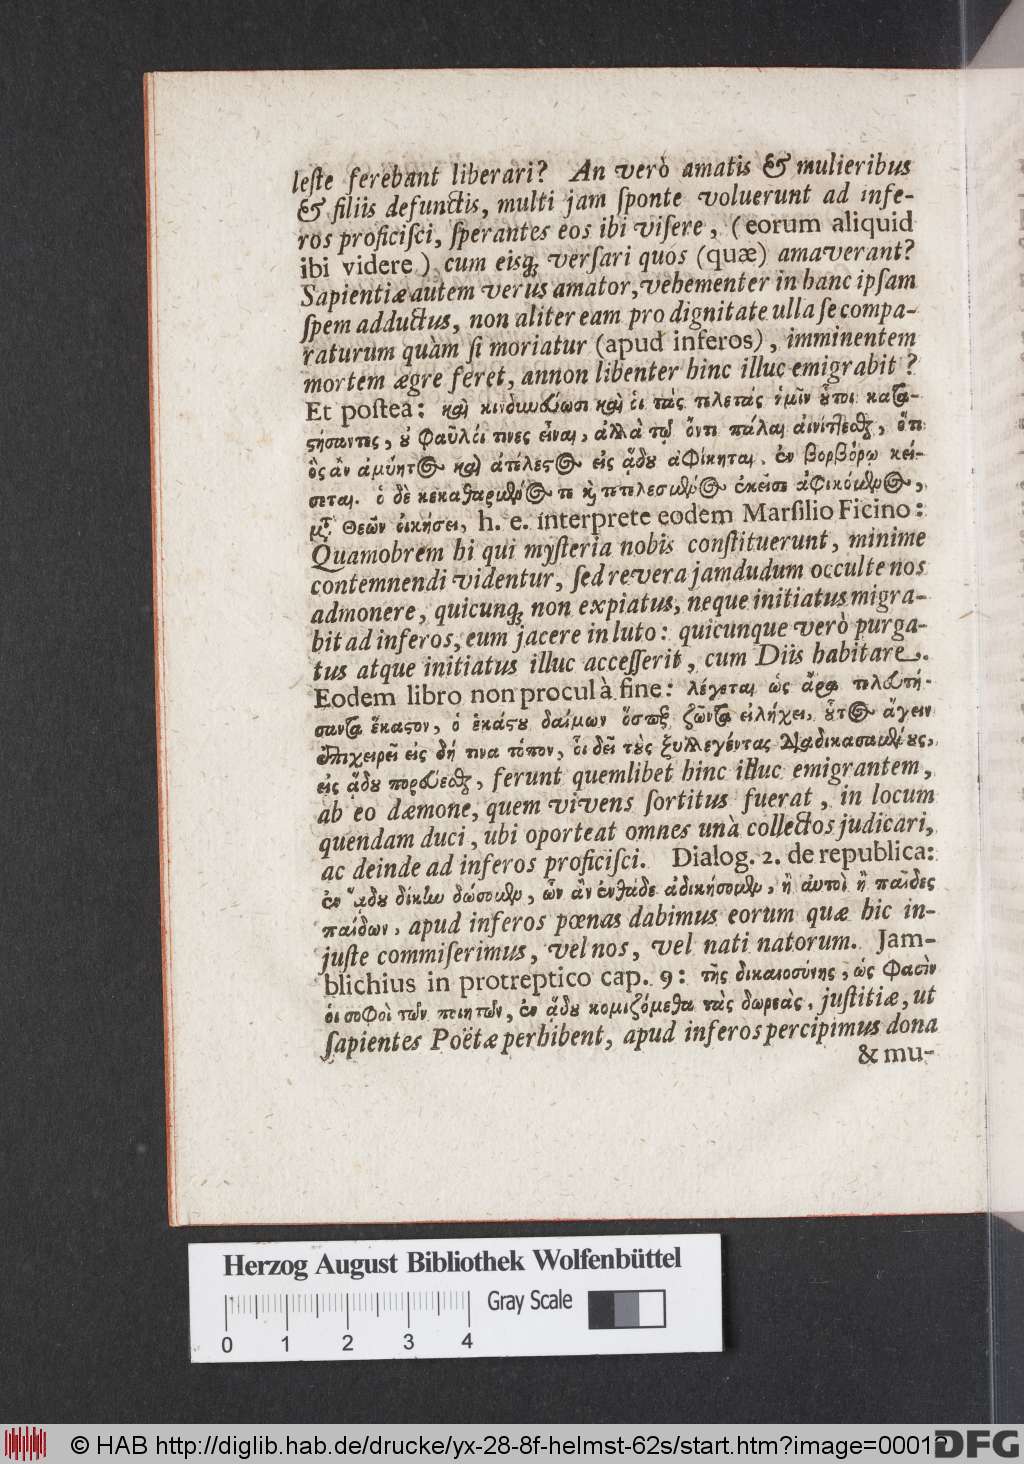 leſte ferebant liberari? An verò amatis & mulieribus
& filiis defunctis, multi jam ſponte voluerunt ad infe-
ros proficiſci, ſperantes eos ibi viſere, (eorum aliquid
ibi videre) cum eisq; verſari quos (quæ) amaverant?
Sapientiæ autem verus amator, vehementer in hanc ipſam
ſpem adductus, non aliter eam pro dignitate ulla ſe compa-
raturum quàm ſi moriatur (apud inferos), imminentem
mortem ægre feret, annon libenter hinc illuc emigrabit?
Et poſtea: καὶ κινδυνεύωσι καὶ οἱ τὰς τελετάς ἡμῖν ὗτοι κατα-
ςήσαντες, ὐ φαῦλοί τινες εἶναι, ἀλλὰ τῷ ὄντι πάλαι αἰνίττεσθαι, ὅτι
ὃς ἂν ἀμύητος καὶ ἀτέλεςος εἰς ᾅδου ἀφίκηται, ἐν βορβόρῳ κεί-
σεται. ὁ δὲ κεκαθαρμένος τε κὶ τετελεσμένος ἐκεῖσε ἀφικόμενος,
μετὰ θεῶν οἰκήσει, h. e. interprete eodem Marſilio Ficino:
Quamobrem hi qui myſteria nobis conſtituerunt, minime
contemnendi videntur, ſed revera jamdudum occulte nos
admonere, quicunq; non expiatus, neque initiatus migra-
bit ad inferos, eum jacere in luto: quicunque verò purga-
tus atque initiatus illuc acceſſerit, cum Diis habitare.
Eodem libro non procul à fine: λέγεται ὡς ἄρα τελευτή-
σαντα ἕκαςον, ὁ ἑκάςου δαίμων ὅσπερ ζῶντα εἰλήχει, ὗτος ἄγειν
ἐπιχειρεῖ εἰς δή τινα τόπον, οἷ δεῖ τοὺς ξυλλεγέντας διαδικασαμένους,
εἰς ᾅδου πορεύεσθαι, ferunt quemlibet hinc illuc emigrantem,
ab eo dæmone, quem vivens ſortitus fuerat, in locum
quendam duci, ubi oporteat omnes unà collectos judicari,
ac deinde ad inferos proficiſci. Dialog. 2. de republica:
ἐν ᾅδου δίκην δώσομεν, ὧν ἂν ἐνθάδε ἀδικήσομεν, ἢ αὐτοὶ ἢ παῖδες
παίδων, apud inferos pœnas dabimus eorum quæ hic in-
juſte commiſerimus, vel nos, vel nati natorum. Jam-
blichius in protreptico cap. 9: τῆς δικαιοσύνης, ὡς φασὶν
οἱ σοφοὶ τῶν ποιητῶν, ἐν ᾅδου κομιζόμεθα τὰς δωρεὰς, juſtitiæ, ut
ſapientes Poëtæ perhibent, apud inferos percipimus dona
& mu-
Herzog August Bibliothek Wolfenbüttel
Gray Scale
0 1 2 3 4
© HAB http://diglib.hab.de/drucke/yx-28-8f-helmst-62s/start.htm?image=00012
DFG